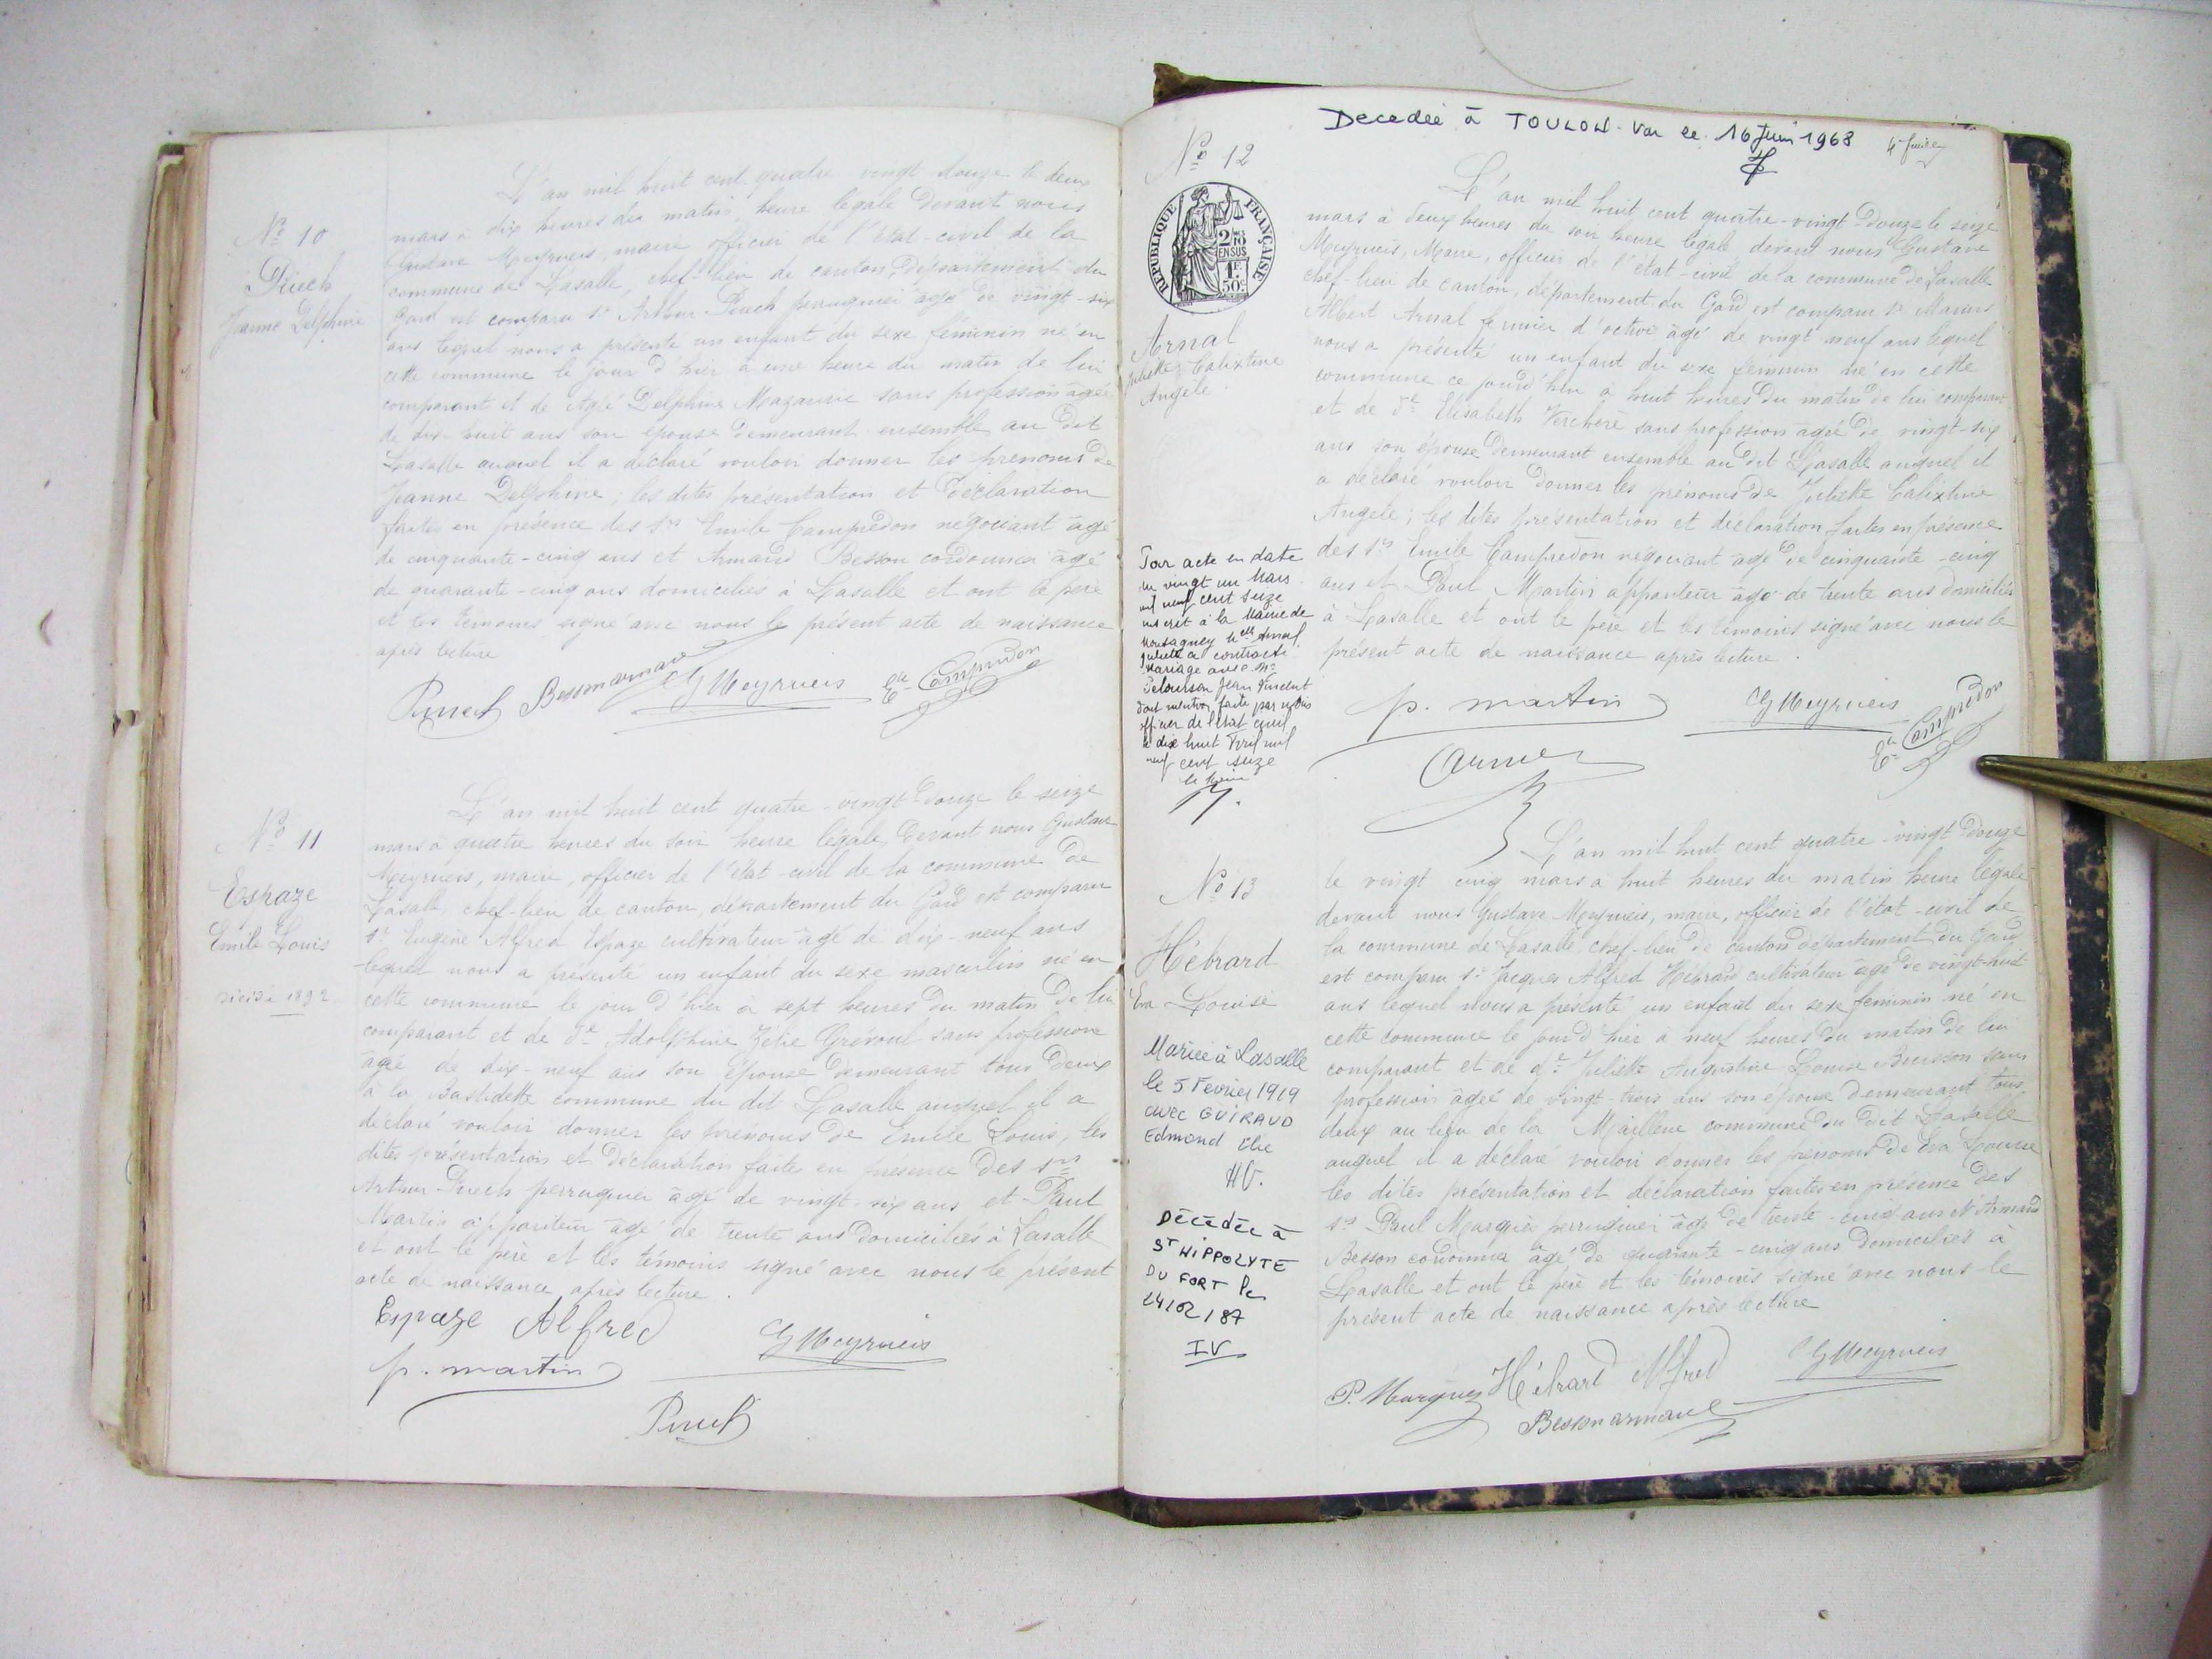 N° 10
Puech
Jeanne Delphine
L'an mil huit cent quatre vingt douze le deux
mars à dix heures du matin, heure légale devant nous
Gustave Meyrueis, maire officier de l'état-civil de la
commune de Lasalle, chef-lieu de canton, département du
Gard est comparu sr Arthur Puech perruquier âgé de vingt-six
ans lequel nous a présenté un enfant du sexe féminin né en
cette commune le jour d'hier à une heure du matin de lui
comparant et de Aglé Delphine Mazauric sans profession âgée
de dix-huit ans son épouse demeurant ensemble au dit
Lasalle auquel il a déclaré vouloir donner les prénoms de
Jeanne Delphine; les dites présentation et déclaration
faites en présence des srs Emile Campredon négociant âgé
de cinquante-cinq ans et Armand Besson cordonnier âgé
de quarante-cinq ans domiciliés à Lasalle et ont le père
et les témoins signé avec nous le présent acte de naissance
après lecture
Puech Besson armand G Meyrueis Ele Campredon
N° 11
Espaze
Emile Louis
décédé 1892
L'an mil huit cent quatre-vingt-douze le seize
mars à quatre heures du soir heure légale, devant nous Gustave
Meyrueis, maire, officier de l'état-civil de la commune de
Lasalle, chef-lieu de canton, département du Gard est comparu
sr Eugène Alfred Espaze cultivateur âgé de dix-neuf ans
lequel nous a présenté un enfant du sexe masculin né en
cette commune le jour d'hier à sept heures du matin de lui
comparant et de de Adolphine Zélie Gréroul sans profession
âgée de dix-neuf ans son épouse demeurant tous deux
à la Bastidette commune du dit Lasalle auquel il a
déclaré vouloir donner les prénoms de Emile Louis, les
dites présentation et déclaration faites en présence des srs
Arthur Puech perruquier âgé de vingt-six ans, et Paul
Martin appariteur âgé de trente ans domiciliés à Lasalle
et ont le père et les témoins signé avec nous le présent
acte de naissance après lecture.
Espaze Alfred G Meyrueis
p. martin
Puech
Decedée à TOULON. Var le 16 Juin 1968
N° 12
RÉPUBLIQUE FRANÇAISE
2/10 EN SUS
1F 50c
Arnal
Juliette Calixtine
Angèle
L'an mil huit cent quatre-vingt-douze le seize
mars à deux heures du soir heure légale devant nous Gustave
Meyrueis, Maire, officier de l'état-civil de la commune de Lasalle
chef-lieu de canton, département du Gard est comparu sr Marius
Albert Arnal fermier d'octroi âgé de vingt-neuf ans lequel
nous a présenté un enfant du sexe féminin né en cette
commune ce jourd'hui à huit heures du matin de lui comparant
et de de Elisabeth Verchère sans profession âgée de vingt-six
ans son épouse demeurant ensemble au dit Lasalle auquel il
a déclaré vouloir donner les prénoms de Juliette Calixtine
Angèle; les dites présentation et déclaration faites en présence
des srs Emile Campredon négociant âgé de cinquante-cinq
ans et Paul Martin appariteur âgé de trente ans domiciliés
à Lasalle et ont le père et les témoins signé avec nous le
présent acte de naissance après lecture.
Par acte en date
du vingt un Mars
mil neuf cent seize
inscrit à la Mairie de
Montagney Melle Arnal
Juliette a contracté
Mariage avec Mr
Jean Vincent
dont mention faite par nous
officier de l'état civil
le dix huit Avril mil
neuf cent seize
p. martin G Meyrueis
Ele Campredon
N° 13
Hébrard
Eva Louise
L'an mil huit cent quatre-vingt-douze
le vingt cinq mars à huit heures du matin heure légale
devant nous Gustave Meyrueis, maire, officier de l'état-civil de
la commune de Lasalle, chef-lieu de canton département du Gard
est comparu sr Jacques Alfred Hébrard cultivateur âgé de vingt-huit
ans lequel nous a présenté un enfant du sexe féminin né en
cette commune le jour d'hier à neuf heures du matin de lui
comparant et de de Juliette Augustine Louise Buisson sans
profession âgée de vingt-trois ans son épouse demeurant tous
deux au lieu de la commune du dit Lasalle
auquel il a déclaré vouloir donner les prénoms de Eva Louise
les dites présentation et déclaration faites en présence des
srs Paul Marquès perruquier âgé de trente-cinq ans et Armand
Besson cordonnier âgé de quarante-cinq ans domiciliés à
Lasalle et ont le père et les témoins signé avec nous le
présent acte de naissance après lecture
Mariée à Lasalle
le 5 Février 1919
avec GUIRAUD
Edmond Elie
HV.
DÉCÉDÉE à
ST HIPPOLYTE
DU FORT le
24/02/87
IV
P. Marquès Hébrard Alfred G Meyrueis
Besson armand